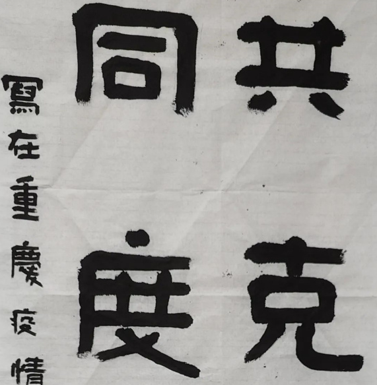 共克
同度
寫在重慶疫情